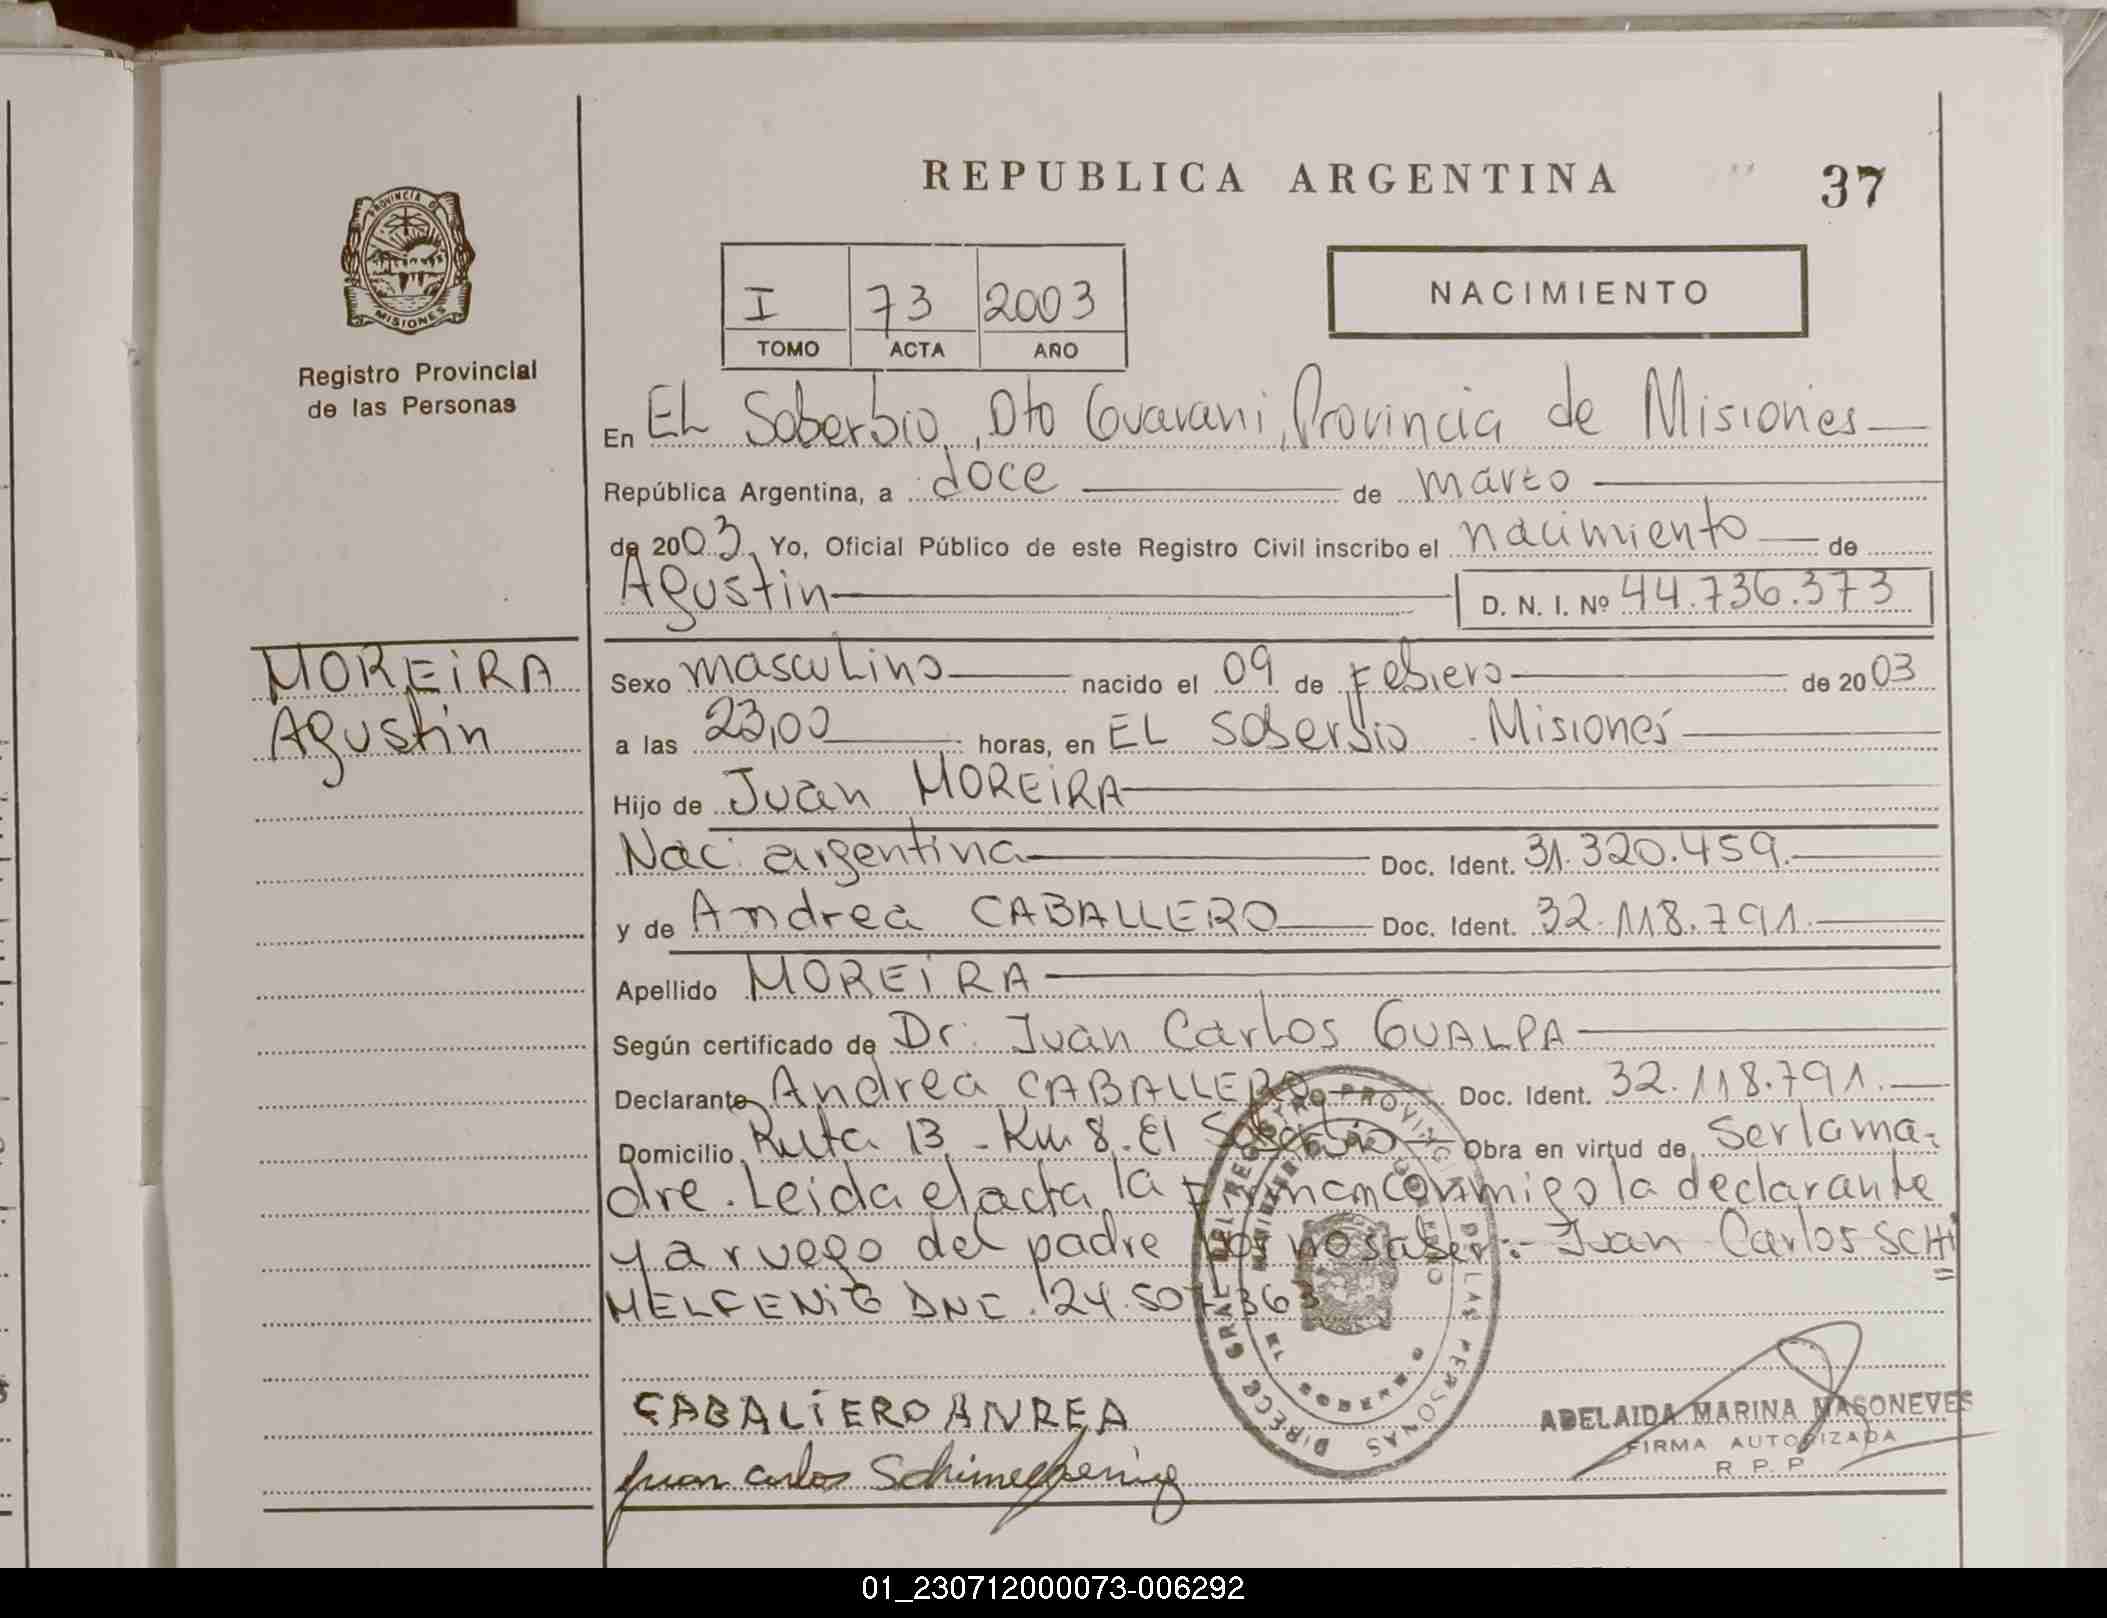 REPUBLICA ARGENTINA
37
PROVINCIA DE
MISIONES
Registro Provincial
de las Personas
I 73 2003
TOMO ACTA AÑO
NACIMIENTO
En EL Soberbio, Dto Guarani, Provincia de Misiones
República Argentina, a doce de marzo
de 2003 Yo, Oficial Público de este Registro Civil inscribo el nacimiento de
Agustin D. N. I. Nº 44.736.373
MOREIRA
Agustin
Sexo masculino nacido el 09 de Febrero de 2003
a las 23,00 horas, en EL Soberbio - Misiones
Hijo de Juan MOREIRA
Nac. argentina Doc. Ident. 31.320.459.
y de Andrea CABALLERO Doc. Ident. 32.118.791.
Apellido MOREIRA
Según certificado de Dr. Juan Carlos GUALPA
Declarante Andrea CABALLERO Doc. Ident. 32.118.791.
Domicilio Ruta 13 - Km 8. El Soberbio Obra en virtud de ser la ma-
dre. Leida el acta la Firman conmigo la declarante
y a ruego del padre por no saber.- Juan Carlos SCHI
MELFENIG DNI. 24.507.363
DIRECC GRAL DEL REGISTRO PROVINCIAL DE LAS PERSONAS
MINISTERIO DE GOBIERNO
CABALIERO ANREA
Juan Carlos Schimelfening
ADELAIDA MARINA MASONEVES
FIRMA AUTORIZADA
R. P. P
01_230712000073-006292